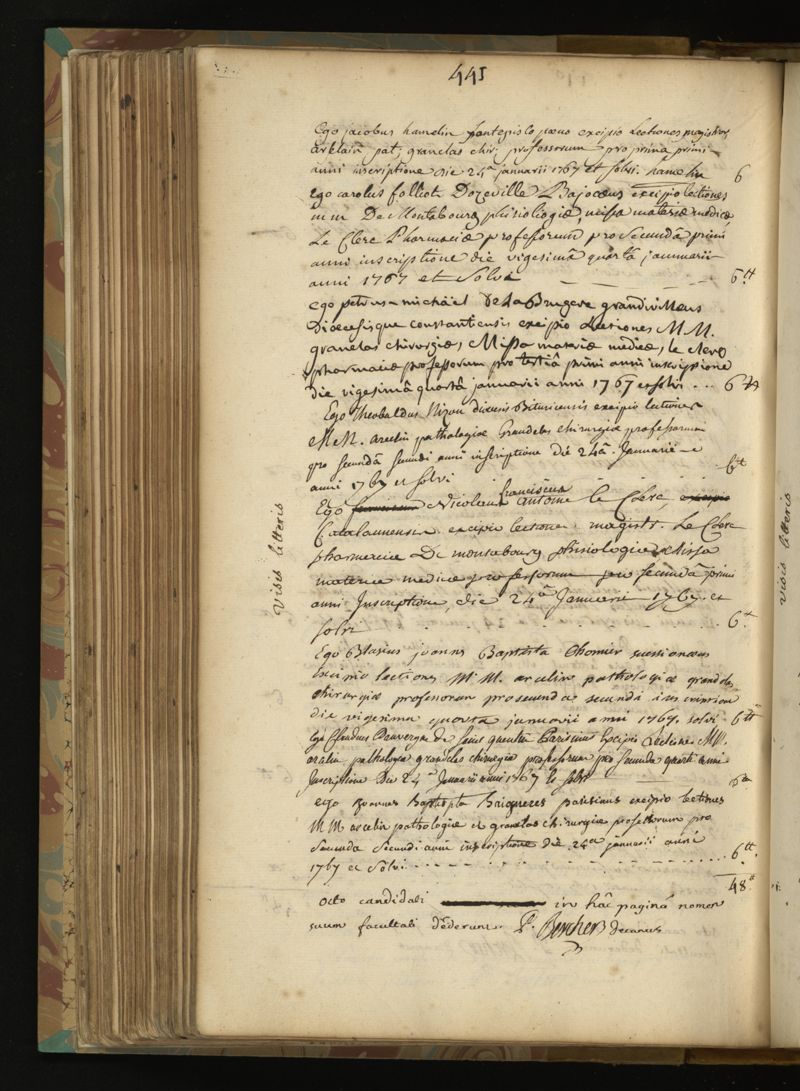 441
Ego jacobus hamelin excipio Lectiones magistror
pat, granclas chir, professorum pro prima primi
anni inscriptione die 24ª januarii 1767 et solvi. hamelin 6
Ego carolus folliot Dozeville Bajocæus excipio lectiones
m m De Montabourg phisiologiæ, missa materiæ medicæ,
Le Clerc Pharmaciæ professorum pro secundâ primi
anni inscriptione die vigesimâ quartâ januarii
anni 1767 et solvi 6tt
ego petrus michael De la Brugere grandivillæus
Dioecesisque constantiensis excipio Lectiones M M.
granclas chirurgiæ, Missa materiæ medicæ, le clerc
pharmaciæ professorum pro tertiâ primi anni inscriptione
die vigesimâ quartâ januarii anni 1767 et solvi ... 6tt
Ego Theobaldus dioecesis Bituricensis excipio lectiones
M M. pathologiæ Granclas chirurgiæ professorum
pro secundâ secundi anni inscriptione die 24â. Januarii
anni 1767 et solvi 6tt
Ego Nicolaus franciscus antoine le Clerc,
Catalaunensis excipio lectiones magistr. Le Clerc
pharmaciæ De montabourg phisiologiæ Missa
materiæ medicæ professorum pro secundâ primi
anni Inscriptione, die 24â Januarii 1767 et
solvi 6tt
Visis litteris
Ego Blasius joannes Baptista suessionæus
Excipio lectiones M M. azcelin pathologiæ granclas
chirurgiæ professorum pro secunda secundi inscriptione
die vigesima quarta januarii anni 1767. solvi 6tt
Ego Claudius Dauvergne De saint quentin Parisinus Excipio Lectiones M M.
pathologiæ granclas chirurgiæ professorum pro secunda quarti anni
Inscriptione Die 24ª Januarii anni 1767 et solvi 6tt
ego Joannes Baptista parisinus excipio lectiones
M M azcelin pathologiæ et granclas chirurgiæ professorum pro
secunda secundi anni inscriptione die 24a januarii anni
1767 et solvi 6tt
48tt
octo candidati in hâc paginâ nomen
suum facultati dederunt. P. Bercher decanus
visis litteris